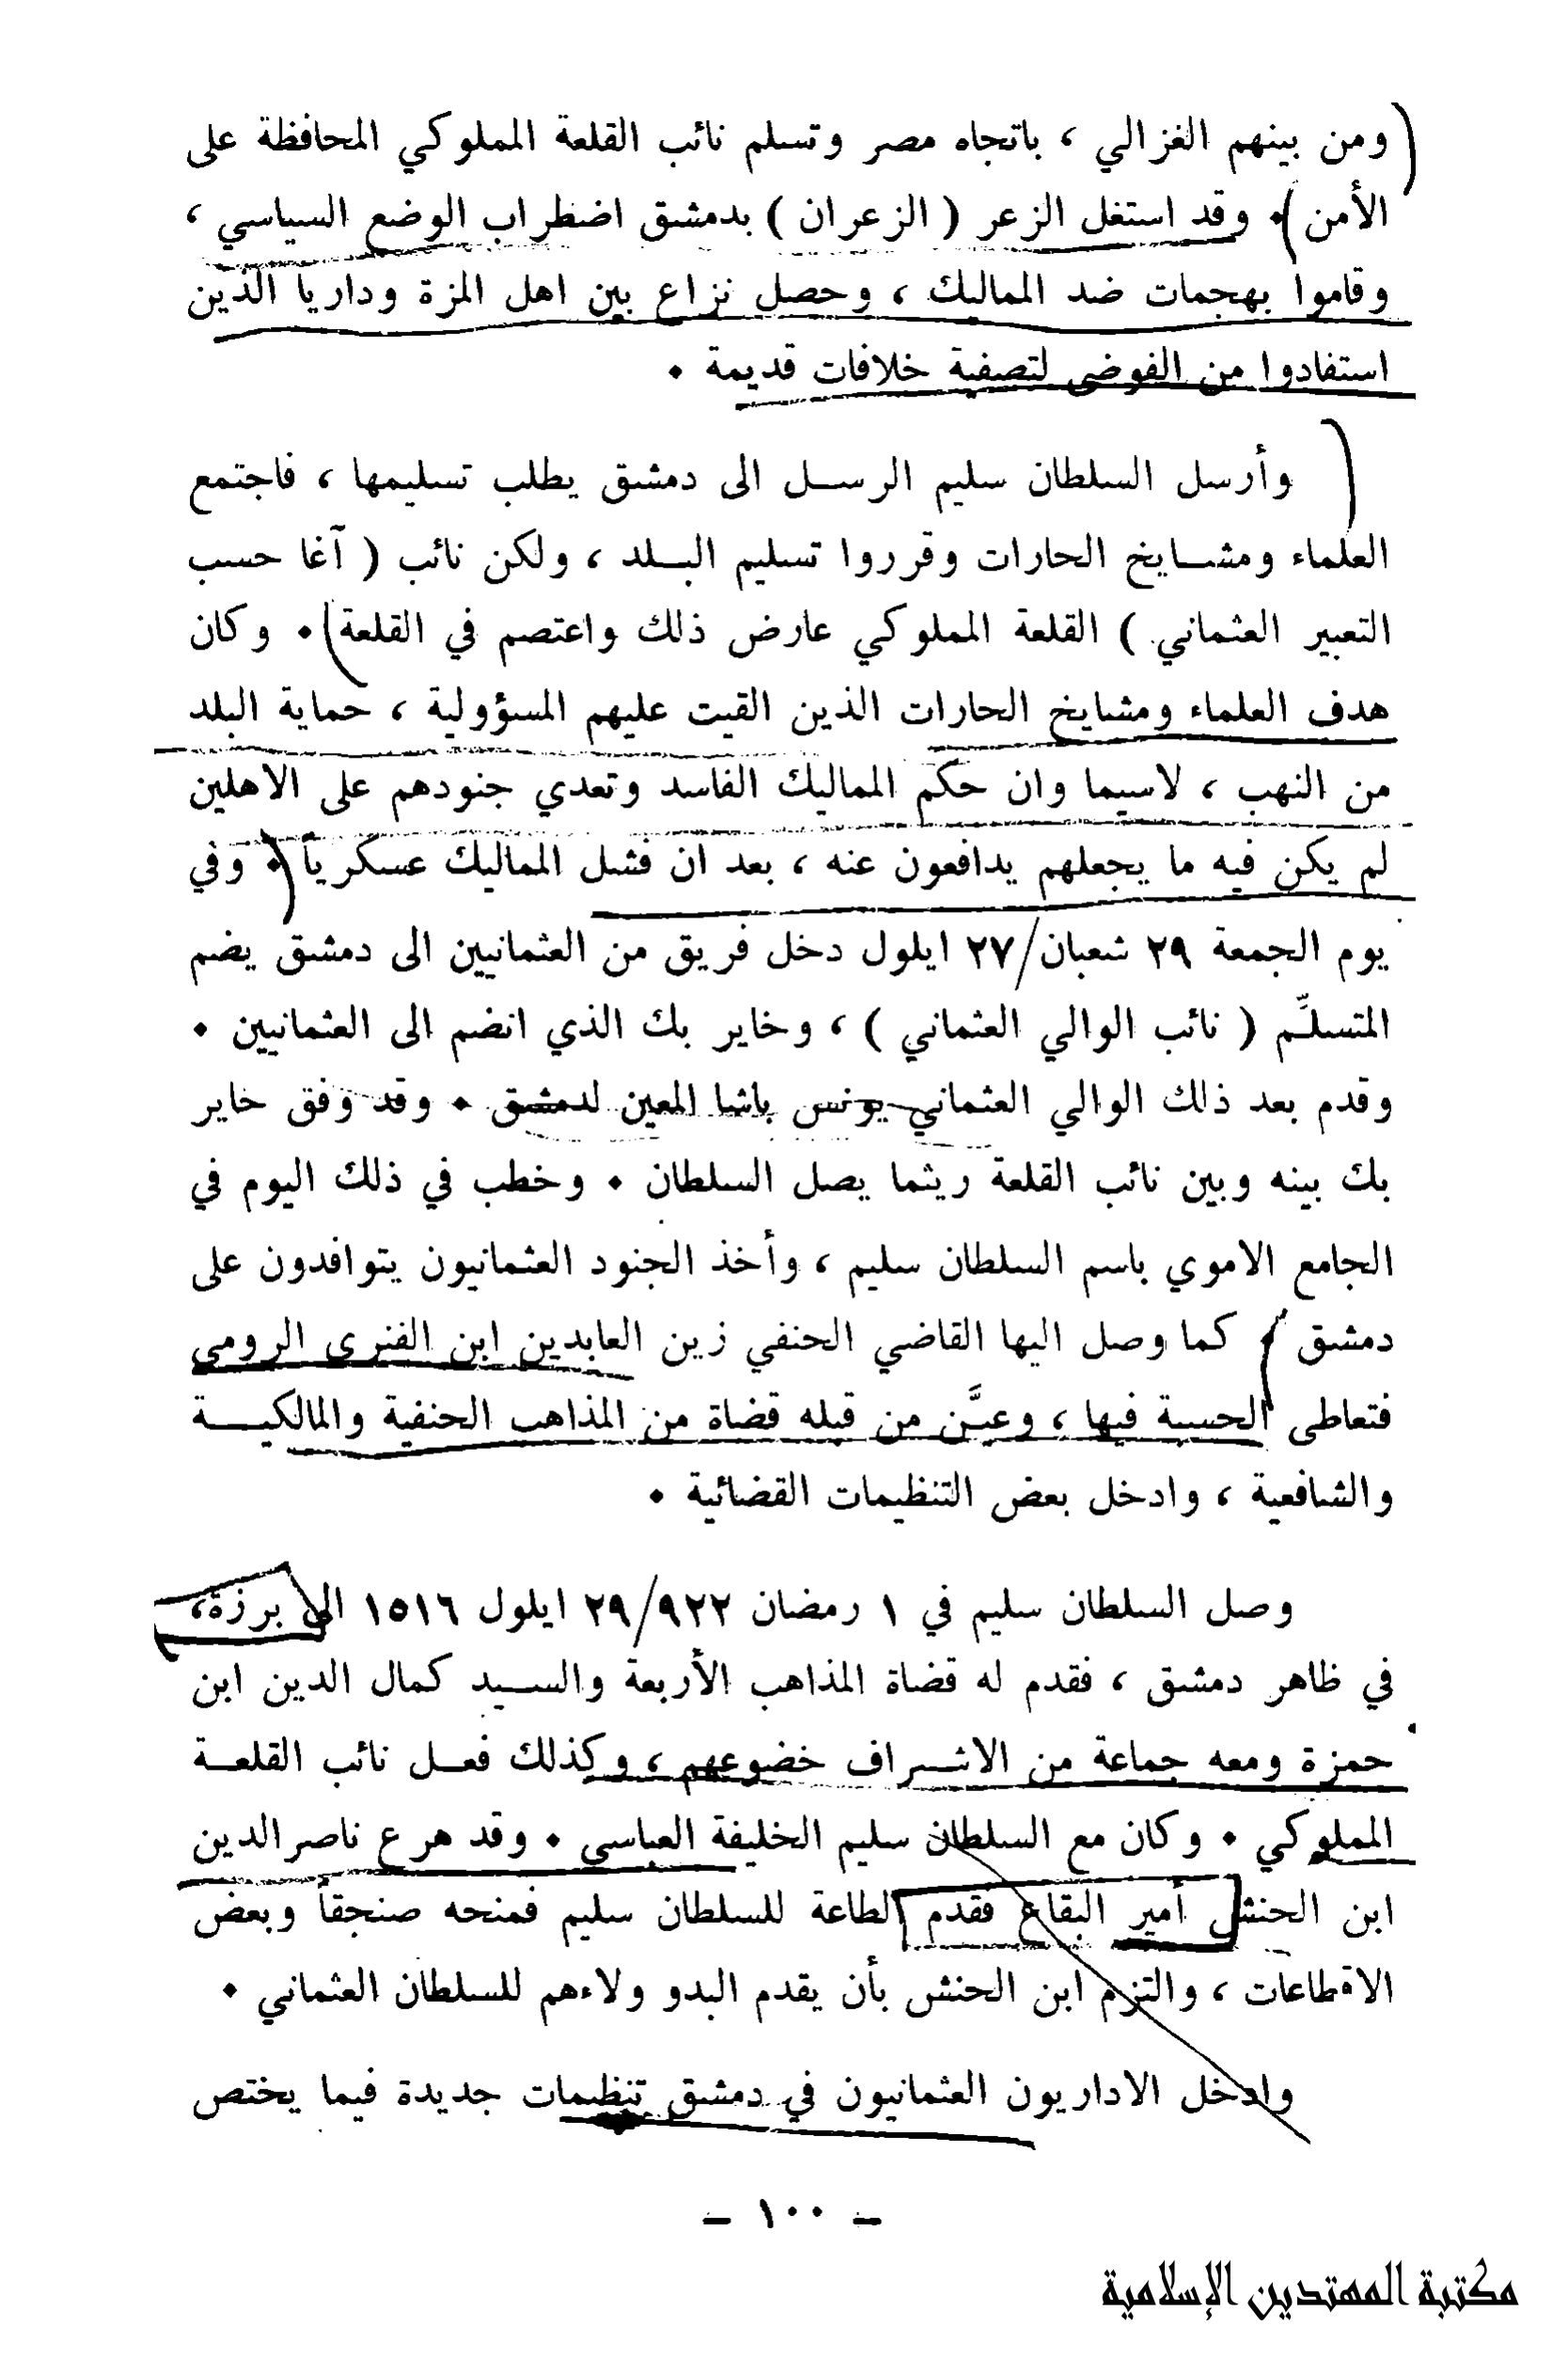 ومن بينهم الغزالي ، باتجاه مصر وتسلم نائب القلعة المملوكي المحافظة على
الأمن ٠ وقد استغل الزعر ( الزعران ) بدمشق اضطراب الوضع السياسي ،
وقاموا بهجمات ضد المماليك ، وحصل نزاع بين اهل المزة وداريا الذين
استفادوا من الفوضى لتصفية خلافات قديمة ٠
وأرسل السلطان سليم الرسل الى دمشق يطلب تسليمها ، فاجتمع
العلماء ومشايخ الحارات وقرروا تسليم البلد ، ولكن نائب ( آغا حسب
التعبير العثماني ) القلعة المملوكي عارض ذلك واعتصم في القلعة ٠ وكان
هدف العلماء ومشايخ الحارات الذين القيت عليهم المسؤولية ، حماية البلد
من النهب ، لاسيما وان حكم المماليك الفاسد وتعدي جنودهم على الاهلين
لم يكن فيه ما يجعلهم يدافعون عنه ، بعد ان فشل المماليك عسكرياً ٠ وفي
يوم الجمعة ٢٩ شعبان/٢٧ ايلول دخل فريق من العثمانيين الى دمشق يضم
المتسلّم ( نائب الوالي العثماني ) ، وخاير بك الذي انضم الى العثمانيين ٠
وقدم بعد ذلك الوالي العثماني يونس باشا المعين لدمشق ٠ وقد وفق خاير
بك بينه وبين نائب القلعة ريثما يصل السلطان ٠ وخطب في ذلك اليوم في
الجامع الاموي باسم السلطان سليم ، وأخذ الجنود العثمانيون يتوافدون على
دمشق ٠ كما وصل اليها القاضي الحنفي زين العابدين ابن الفنري الرومي
فتعاطى الحسبة فيها ، وعيَّن من قبله قضاة من المذاهب الحنفية والمالكية
والشافعية ، وادخل بعض التنظيمات القضائية ٠
وصل السلطان سليم في ١ رمضان ٢٩/٩٢٢ ايلول ١٥١٦ الى برزة،
في ظاهر دمشق ، فقدم له قضاة المذاهب الأربعة والسيد كمال الدين ابن
حمزة ومعه جماعة من الاشراف خضوعهم ، وكذلك فعل نائب القلعة
المملوكي ٠ وكان مع السلطان سليم الخليفة العباسي ٠ وقد هرع ناصرالدين
ابن الحنش أمير البقاع فقدم الطاعة للسلطان سليم فمنحه صنجقاً وبعض
الاقطاعات ، والتزم ابن الحنش بأن يقدم البدو ولاءهم للسلطان العثماني ٠
وادخل الاداريون العثمانيون في دمشق تنظيمات جديدة فيما يختص
– ١٠٠ –
مكتبة المهتدين الإسلامية